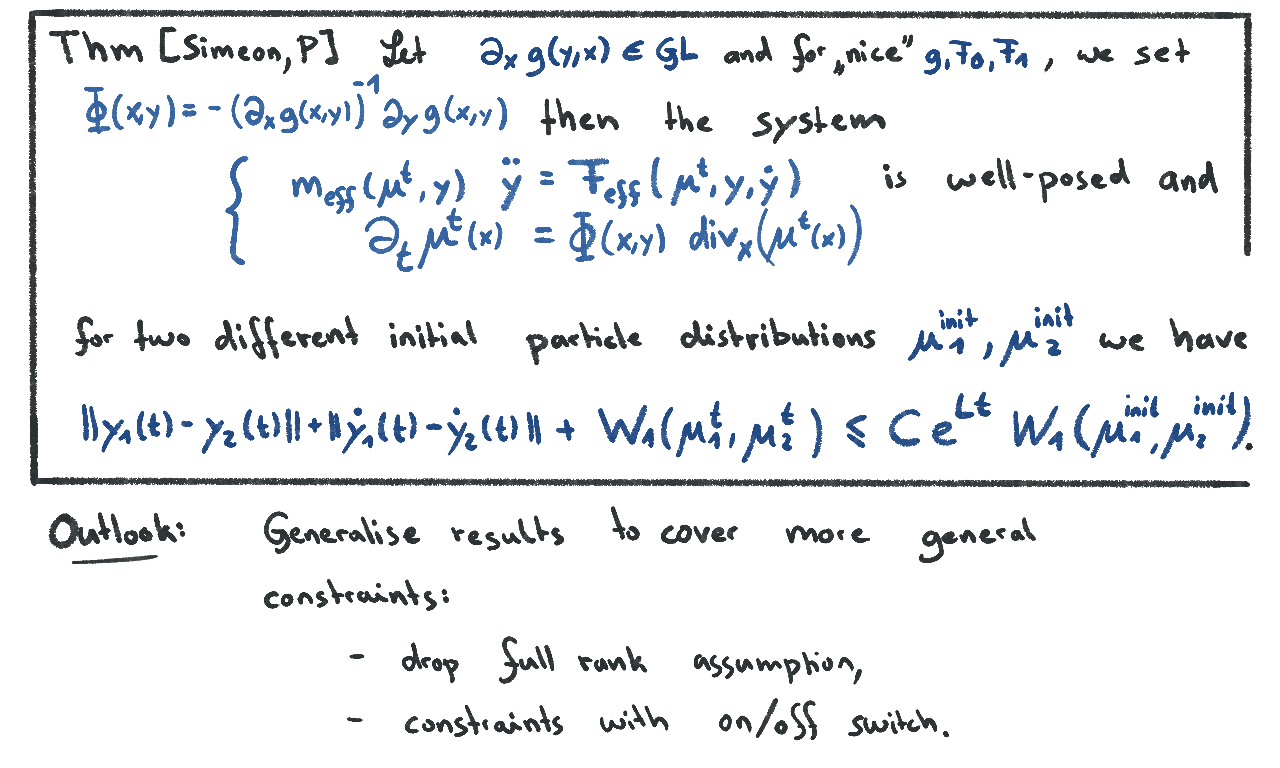 Thm [Simeon, P] Let ∂ₓ g(y,x) ∈ GL and for „nice" g, F₀, F₁, we set
Φ(x,y) = - (∂ₓg(x,y))⁻¹ ∂ᵧg(x,y) then the system
{ m_eff(μᵗ, y) ÿ = F_eff(μᵗ, y, ẏ) is well-posed and
∂ₜμᵗ(x) = Φ(x,y) divₓ(μᵗ(x))
for two different initial particle distributions μ₁^init, μ₂^init we have
||y₁(t) - y₂(t)|| + ||ẏ₁(t) - ẏ₂(t)|| + W₁(μ₁ᵗ, μ₂ᵗ) ⩽ C e^{Lt} W₁(μ₁^init, μ₂^init).
Outlook: Generalise results to cover more general
constraints:
- drop full rank assumption,
- constraints with on/off switch.